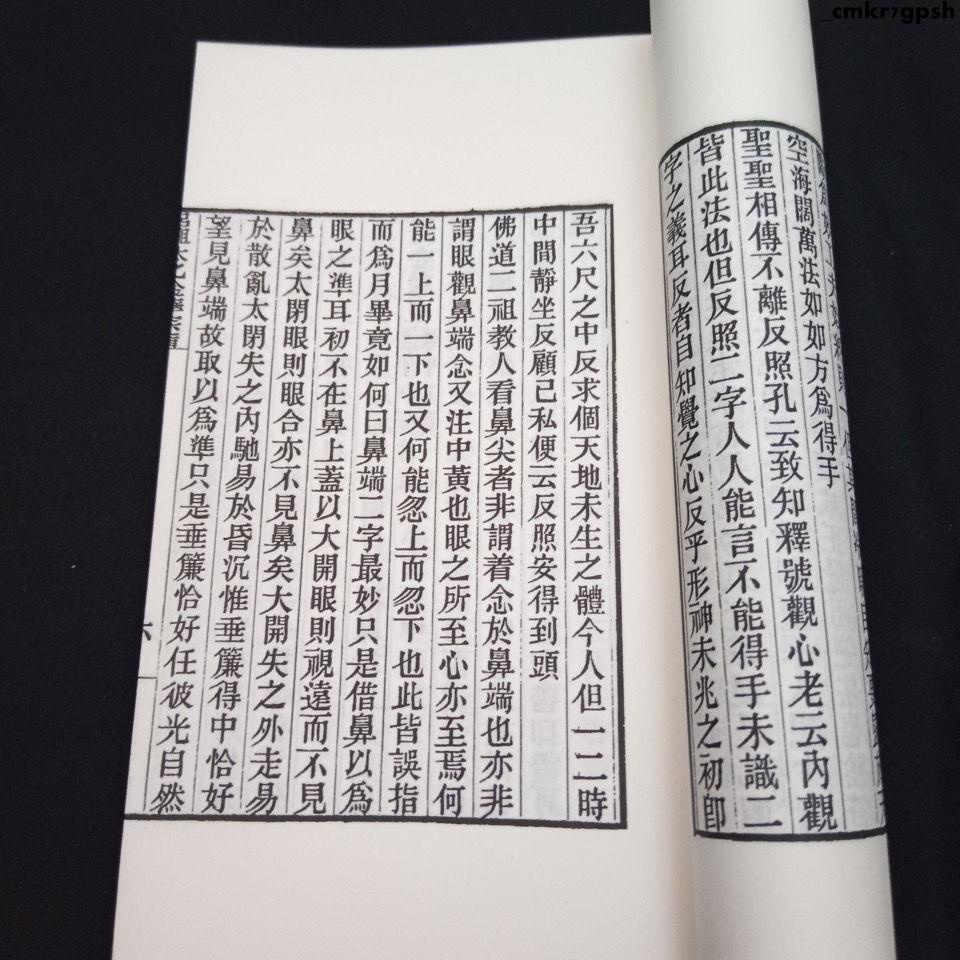 _cmkr7gpsh
空海闊萬法如如方爲得手
聖聖相傳不離反照孔云致知釋號觀心老云內觀
皆此法也但反照二字人人能言不能得手未識二
字之義耳反者自知覺之心反乎形神未兆之初卽
吾六尺之中反求個天地未生之體今人但一二時
中間靜坐反顧己私便云反照安得到頭
佛道二祖教人看鼻尖者非謂着念於鼻端也亦非
謂眼觀鼻端念又注中黃也眼之所至心亦至焉何
能一上而一下也又何能忽上而忽下也此皆誤指
而爲月畢竟如何曰鼻端二字最妙只是借鼻以爲
眼之準耳初不在鼻上蓋以大開眼則視遠而不見
鼻矣太閉眼則眼合亦不見鼻矣大開失之外走易
於散亂太閉失之內馳易於昏沉惟垂簾得中恰好
望見鼻端故取以爲準只是垂簾恰好任彼光自然
六